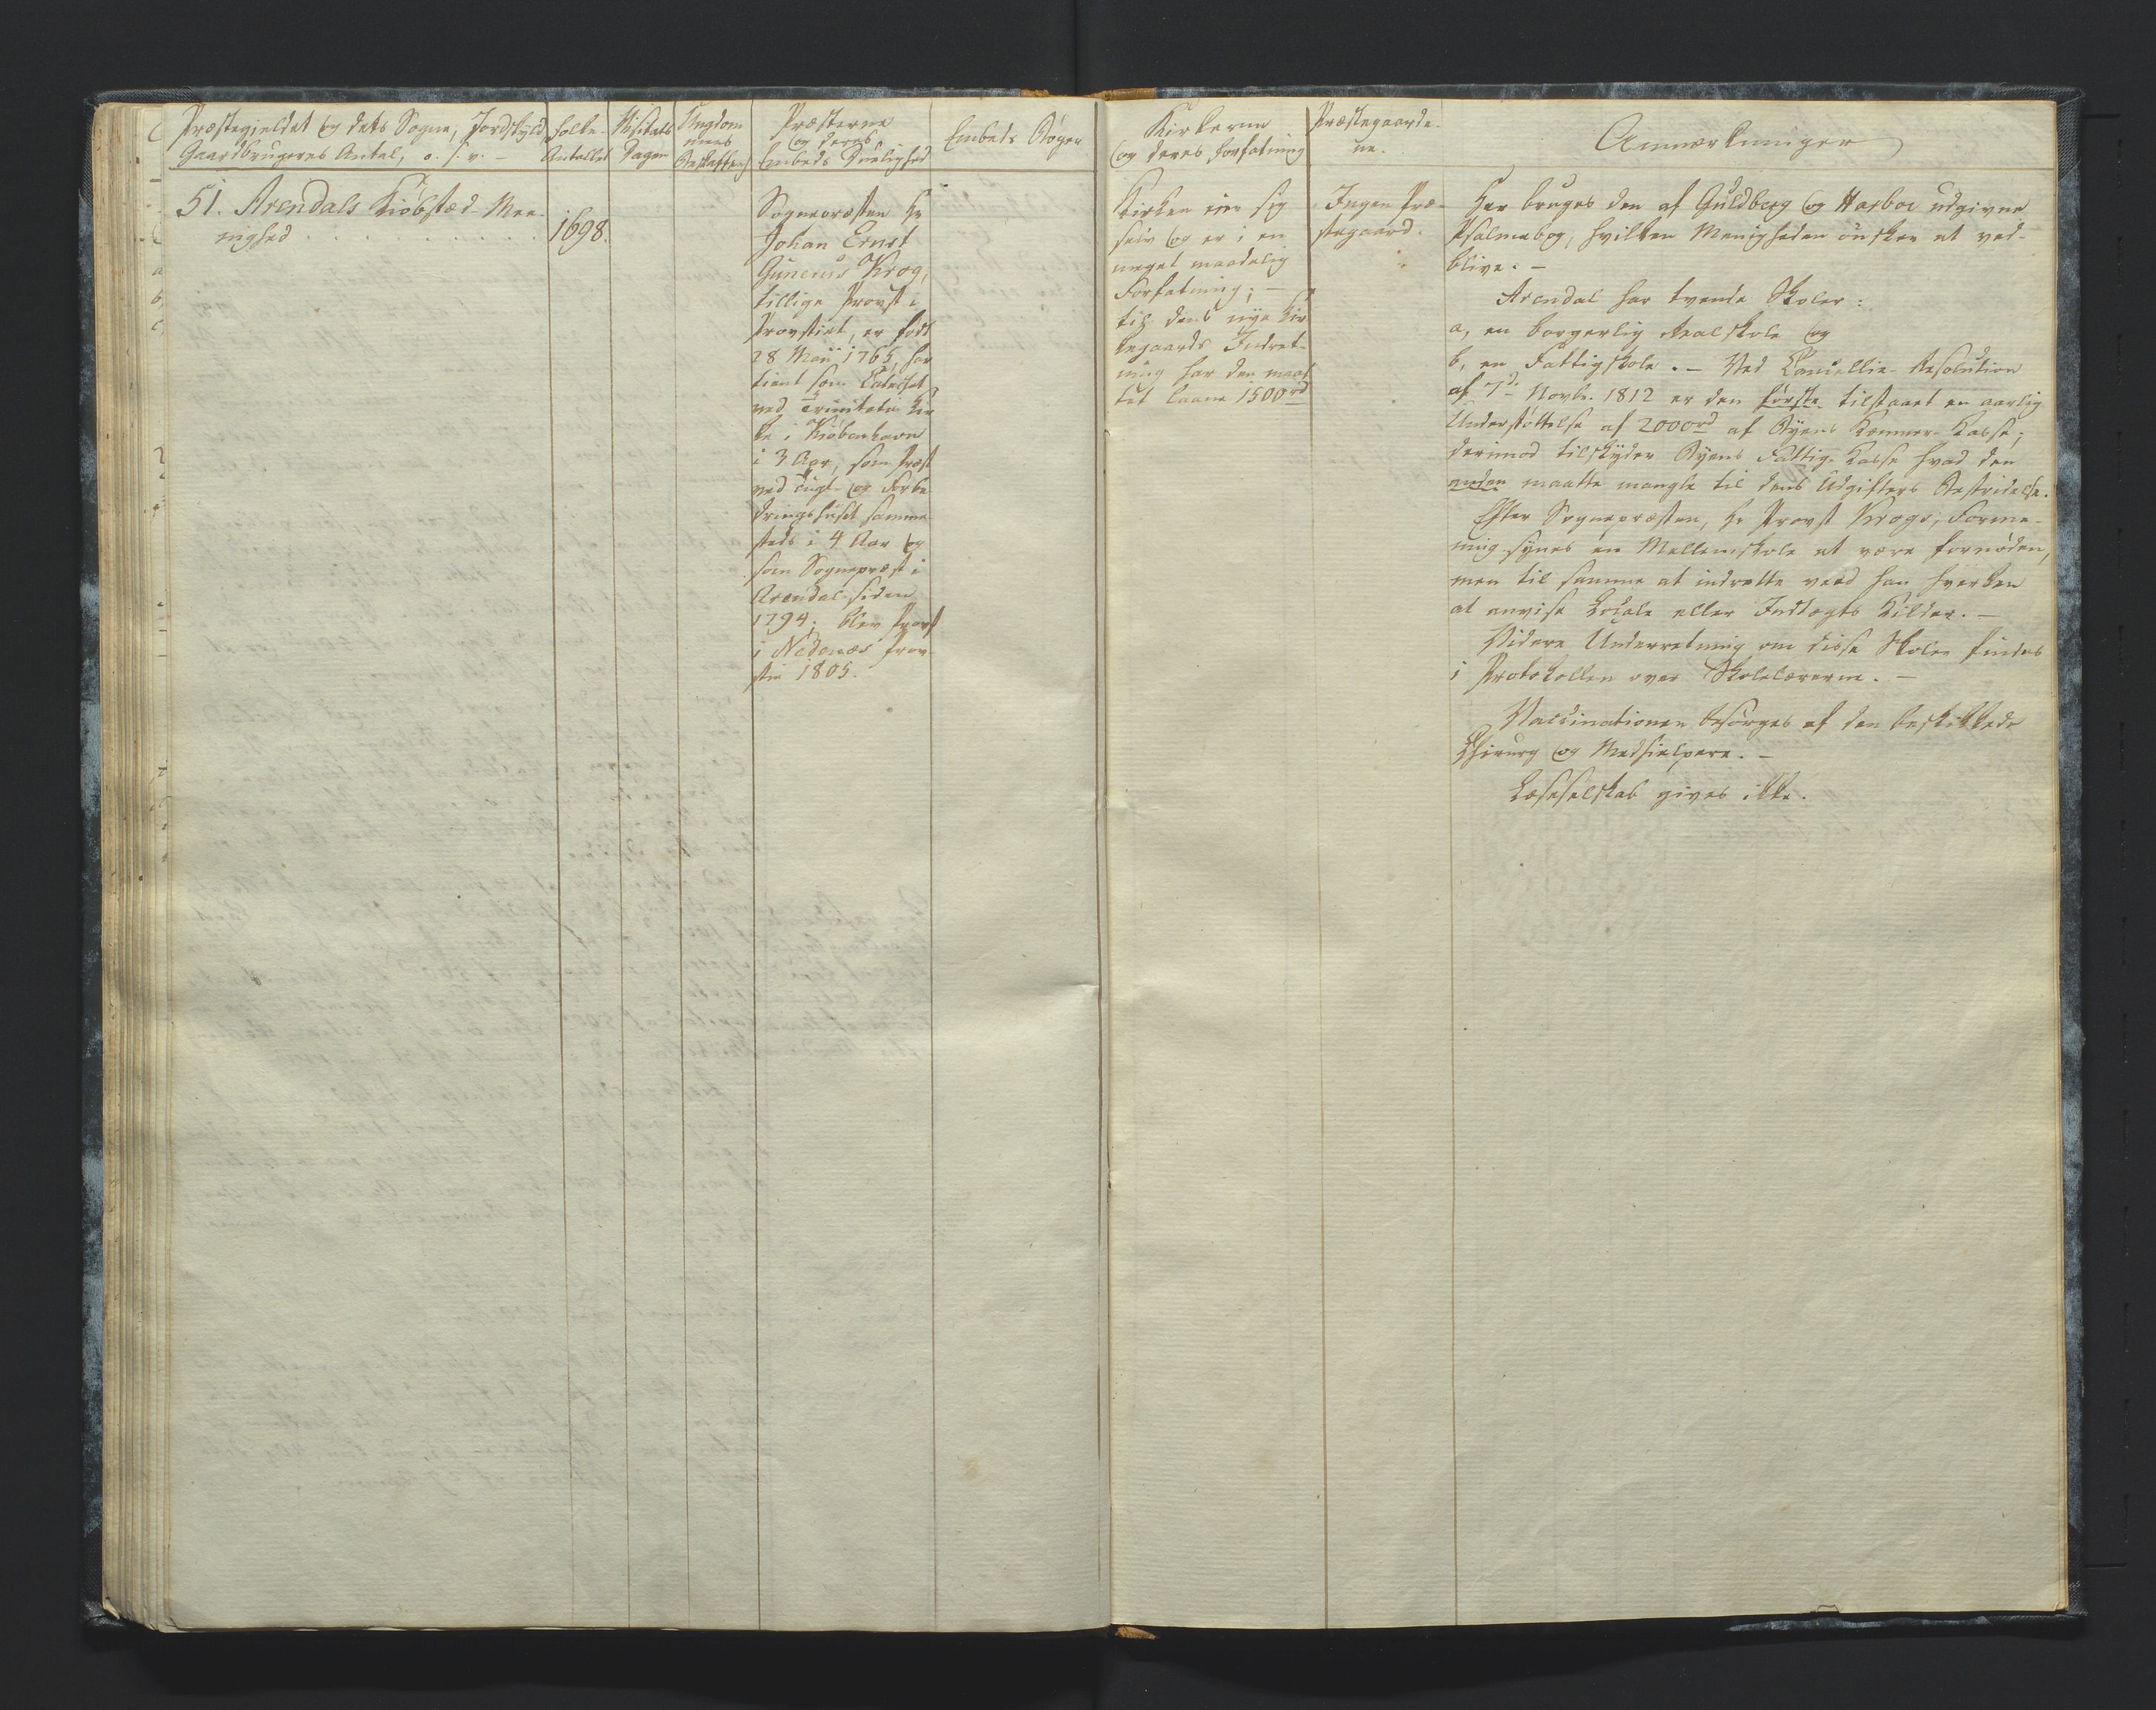 Præstegieldet og dets Sogne, Jordskyld
Gaardbrugeres Antal, o. s. v. –
Folke-
Antallet
Visitats
Dagen
Ungdom
mens
Beskaffenh
Præsterne
og deres
Embeds Duelighed
Embeds Bøger
51. Arendals Kiöbstæd-Mee-
nighed . . . . . . . . . .
1698.
Sognepræsten Hr
Johan Ernst
Gunerus Krog,
tillige Provst i
Provstiet, er født
28 Maii 1765, har
tient som Catechet
ved Trinitatis Kir
ke i Kiöbenhavn
i 3 Aar, som Præst
ved Tugt- og Forbe
dringshuset samme
steds i 4 Aar og
som Sognepræst i
Arendal siden
1794; blev Provst
i Nedenæs Prov-
stie 1805.
Kirkerne
og deres Forfatning
Præstegaarde-
ne.
Anmærkninger
Kirken eier sig
selv og er i en
meget maadelig
Forfatning; –
til dens nye Kir
kegaards Indret-
ning har den maat
tet laane 1500rd
Ingen Præ-
stegaard.
Her bruges den af Guldberg og Harboe udgivne
Psalmebog, hvilken Menigheden önsker at ved-
blive. –
Arendal har tvende Skoler:
a, en borgerlig Realskole og
b, en Fattigskole. – Ved Cancellie-Resolution
af 7d. Novbr. 1812 er den første tilstaaet en aarlig
Understøttelse af 2000rd af Byens Kæmner-Kasse;
derimod tilskyder Byens Fattig-Casse hvad den
anden maatte mangle til dens Udgifters Bestridelse.
Efter Sognepræsten, Hr Provst Krogs, Forme-
ning synes en Mellemskole at være fornöden,
men til samme at indrette veed han hverken
at anvise Locale eller Indtægts Kilder. –
Videre Underretning om disse Skoler findes
i Protokollen over Skolelærerne. –
Vaccinationen besörges af den beskikkede
Chirurg og Medhielpere. –
Læseselskab gives ikke.